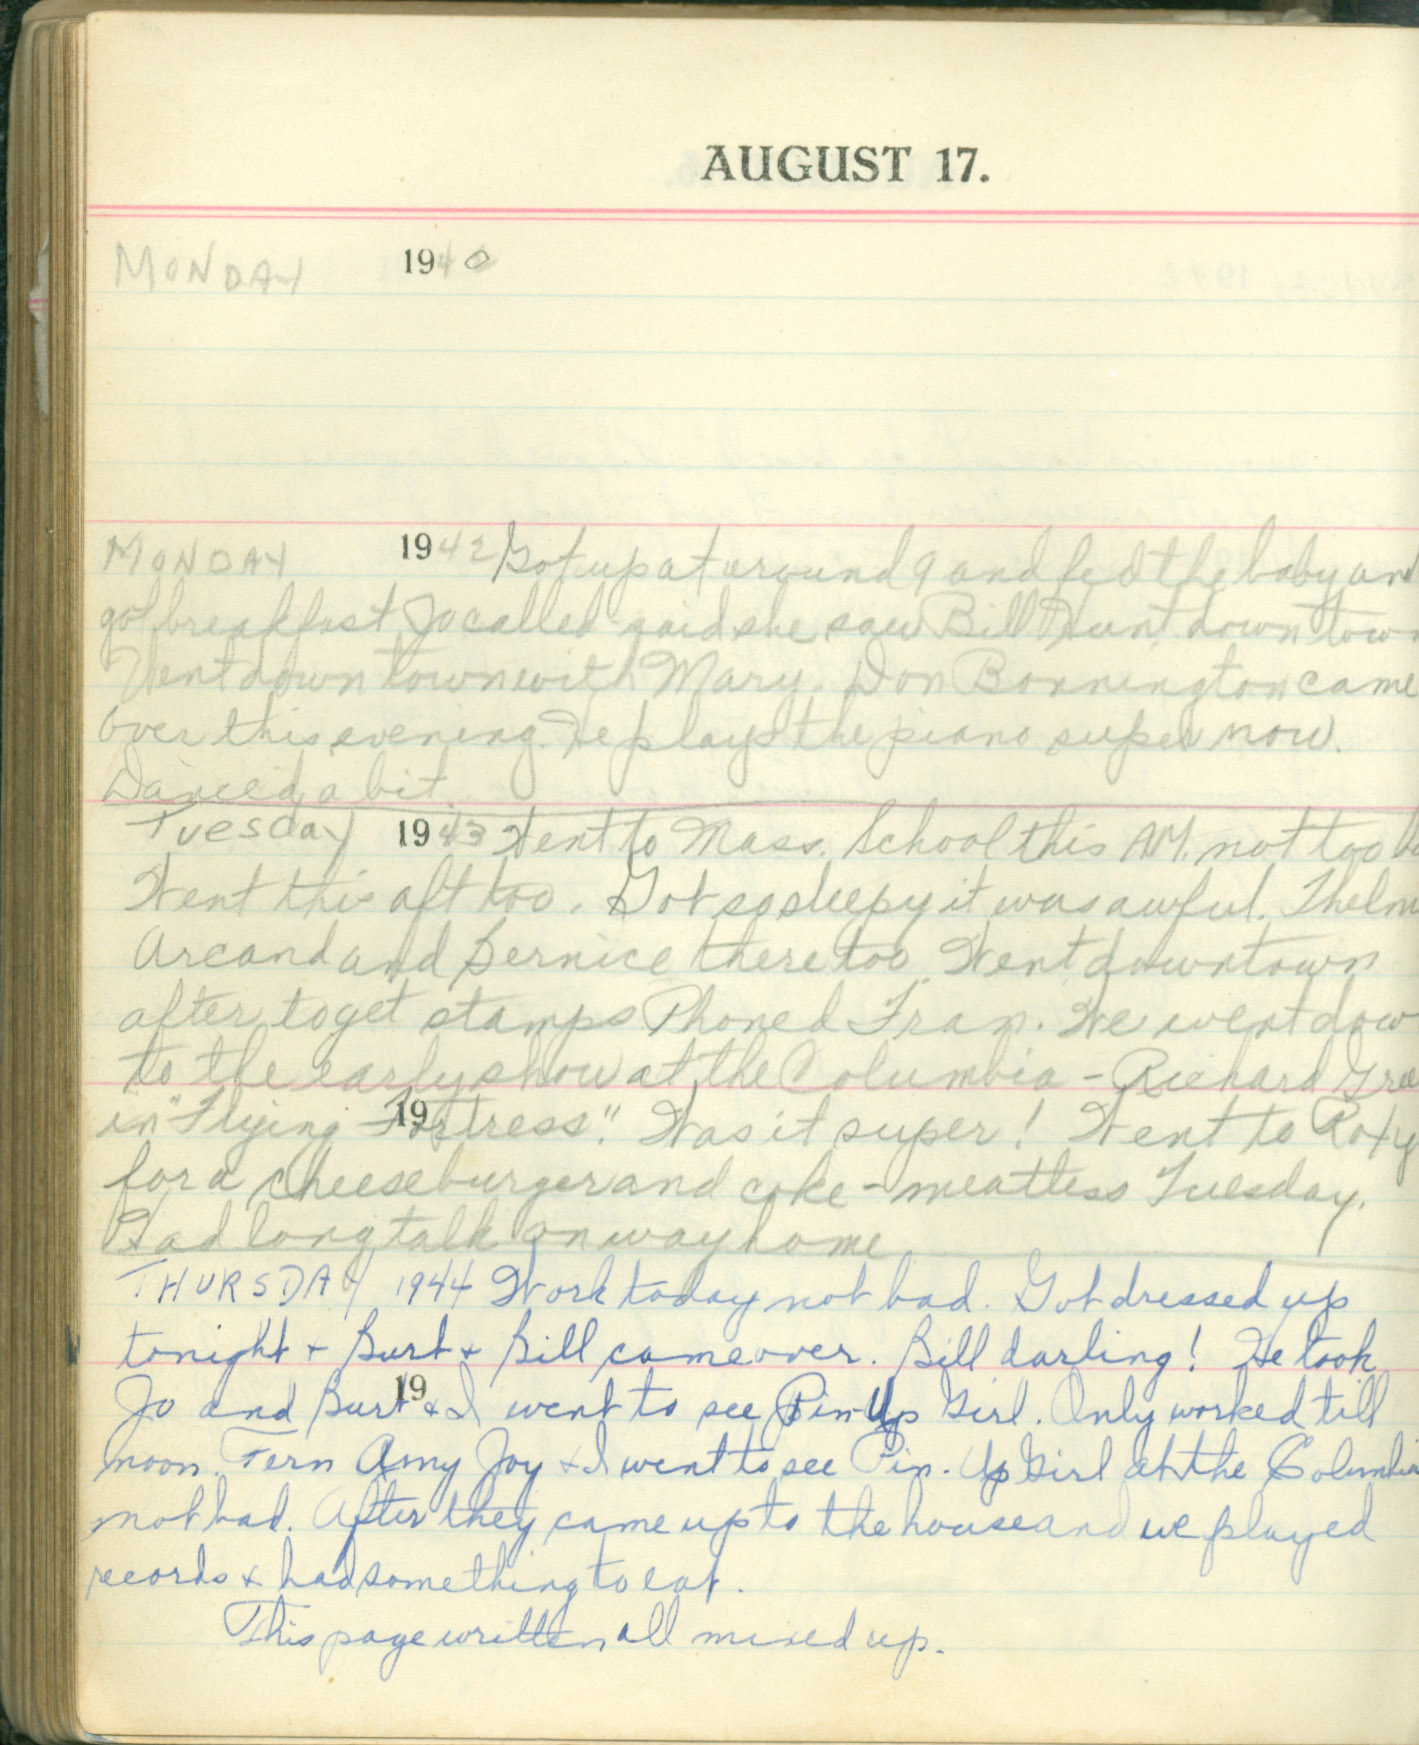 AUGUST 17.
MONDAY 1940
MONDAY 1942 Got up at around 9 and fed the baby and
got breakfast Jo called said she saw Bill Hunt down town
Went down town with Mary. Don Bonnington came
over this evening. He plays the piano super now.
Danced a bit.
Tuesday 1943 Went to Mass. School this AM. not too
Went this aft too. Got so sleepy it was awful. Thelm
Arcand and Bernice there too. Went downtown
after to get stamps Phoned Fran. We went dow
to the early show at the Columbia - Richard Gree
in "Flying Fortress." Was it super! Went to Roxy
19
for a cheeseburger and coke - meatless Tuesday.
Had long talk on way home
THURSDAY 1944 Work today not bad. Got dressed up
tonight + Burt + Bill came over. Bill darling! He took
19
Jo and Burt & I went to see Pin Up Girl. Only worked till
noon. Fern Amy Joy + I went to see Pin-Up Girl at the Columbia
not bad. After they came up to the house and we played
records & had something to eat.
This page written all mixed up.